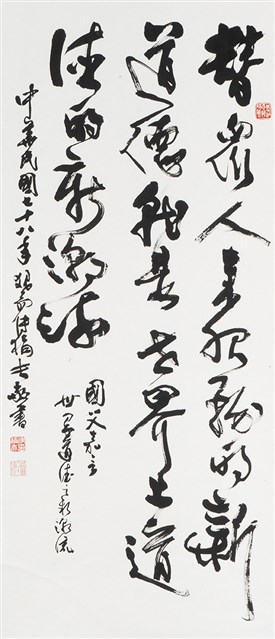 替眾人來服務的新
道德就是世界上道
德的新潮流
國父嘉言
世界道德之新潮流
中華民國七十八年 書